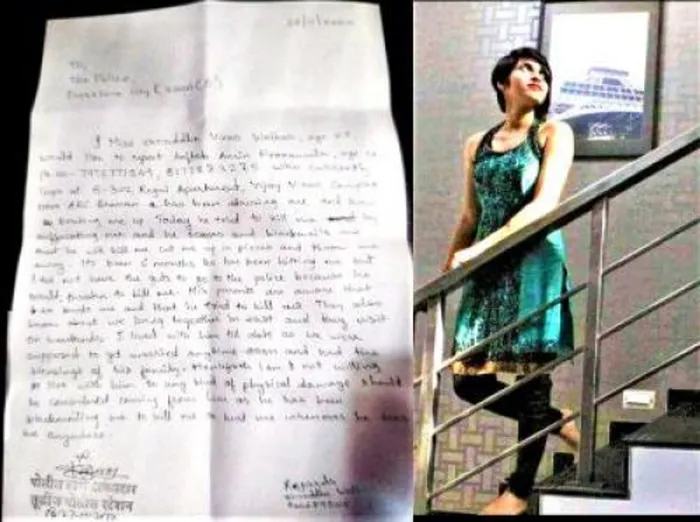 To,
The Police,
I Miss Vikas Walkar, age
would like to report Aftab Amin Poonawala, age
who currently
lives at Regal Apartment, Vijay Vihar Complex
has been abusing me and
beating me up Today he tried to kill me by
suffocating me and he scares and blackmails me
that he will kill me, cut me up in pieces and throw me
away. Its been 6 months he has been hitting me but
I did not have the guts to go to the police because he
would threaten to kill me. His parents are aware that
he beats me and that he tried to kill me. They also
know about we living together and they visit
on weekends. I lived with him till date as we were
supposed to get married anytime soon and had the
blessings of his family. Henceforth I am not willing
to live with him so any kind of physical damage should
be considered coming from him as he has been
blackmailing me to kill me or hurt me whenever he sees
me anywhere.
Regards
पोलीस
पोलीस स्टेशन